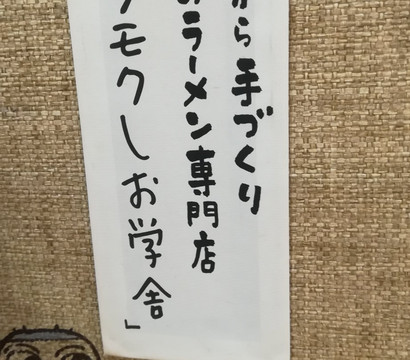 から手づくり
ラーメン専門店
モクしお学舎」